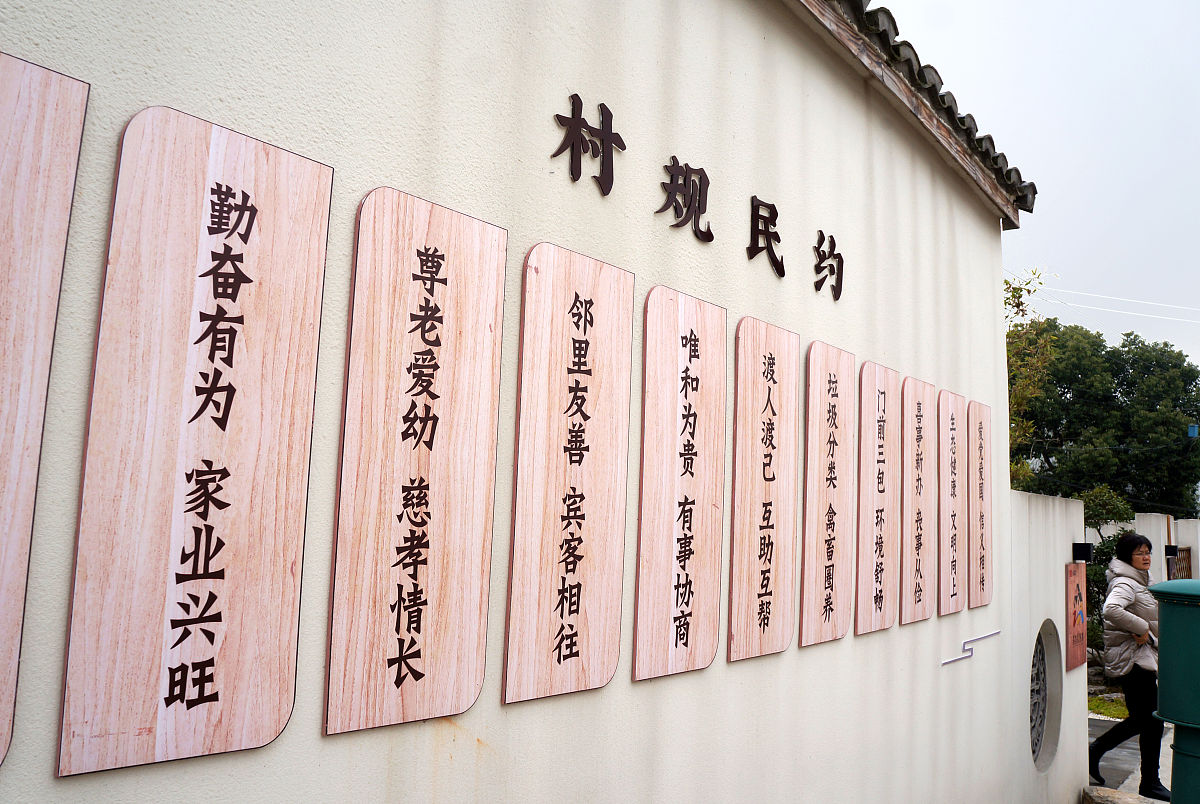 村规民约
爱党爱国 信义相传
生态健康 文明向上
喜事新办 丧事从俭
门前三包 环境舒畅
垃圾分类 禽畜圈养
渡人渡己 互助互帮
唯和为贵 有事协商
邻里友善 宾客相往
尊老爱幼 慈孝情长
勤奋有为 家业兴旺